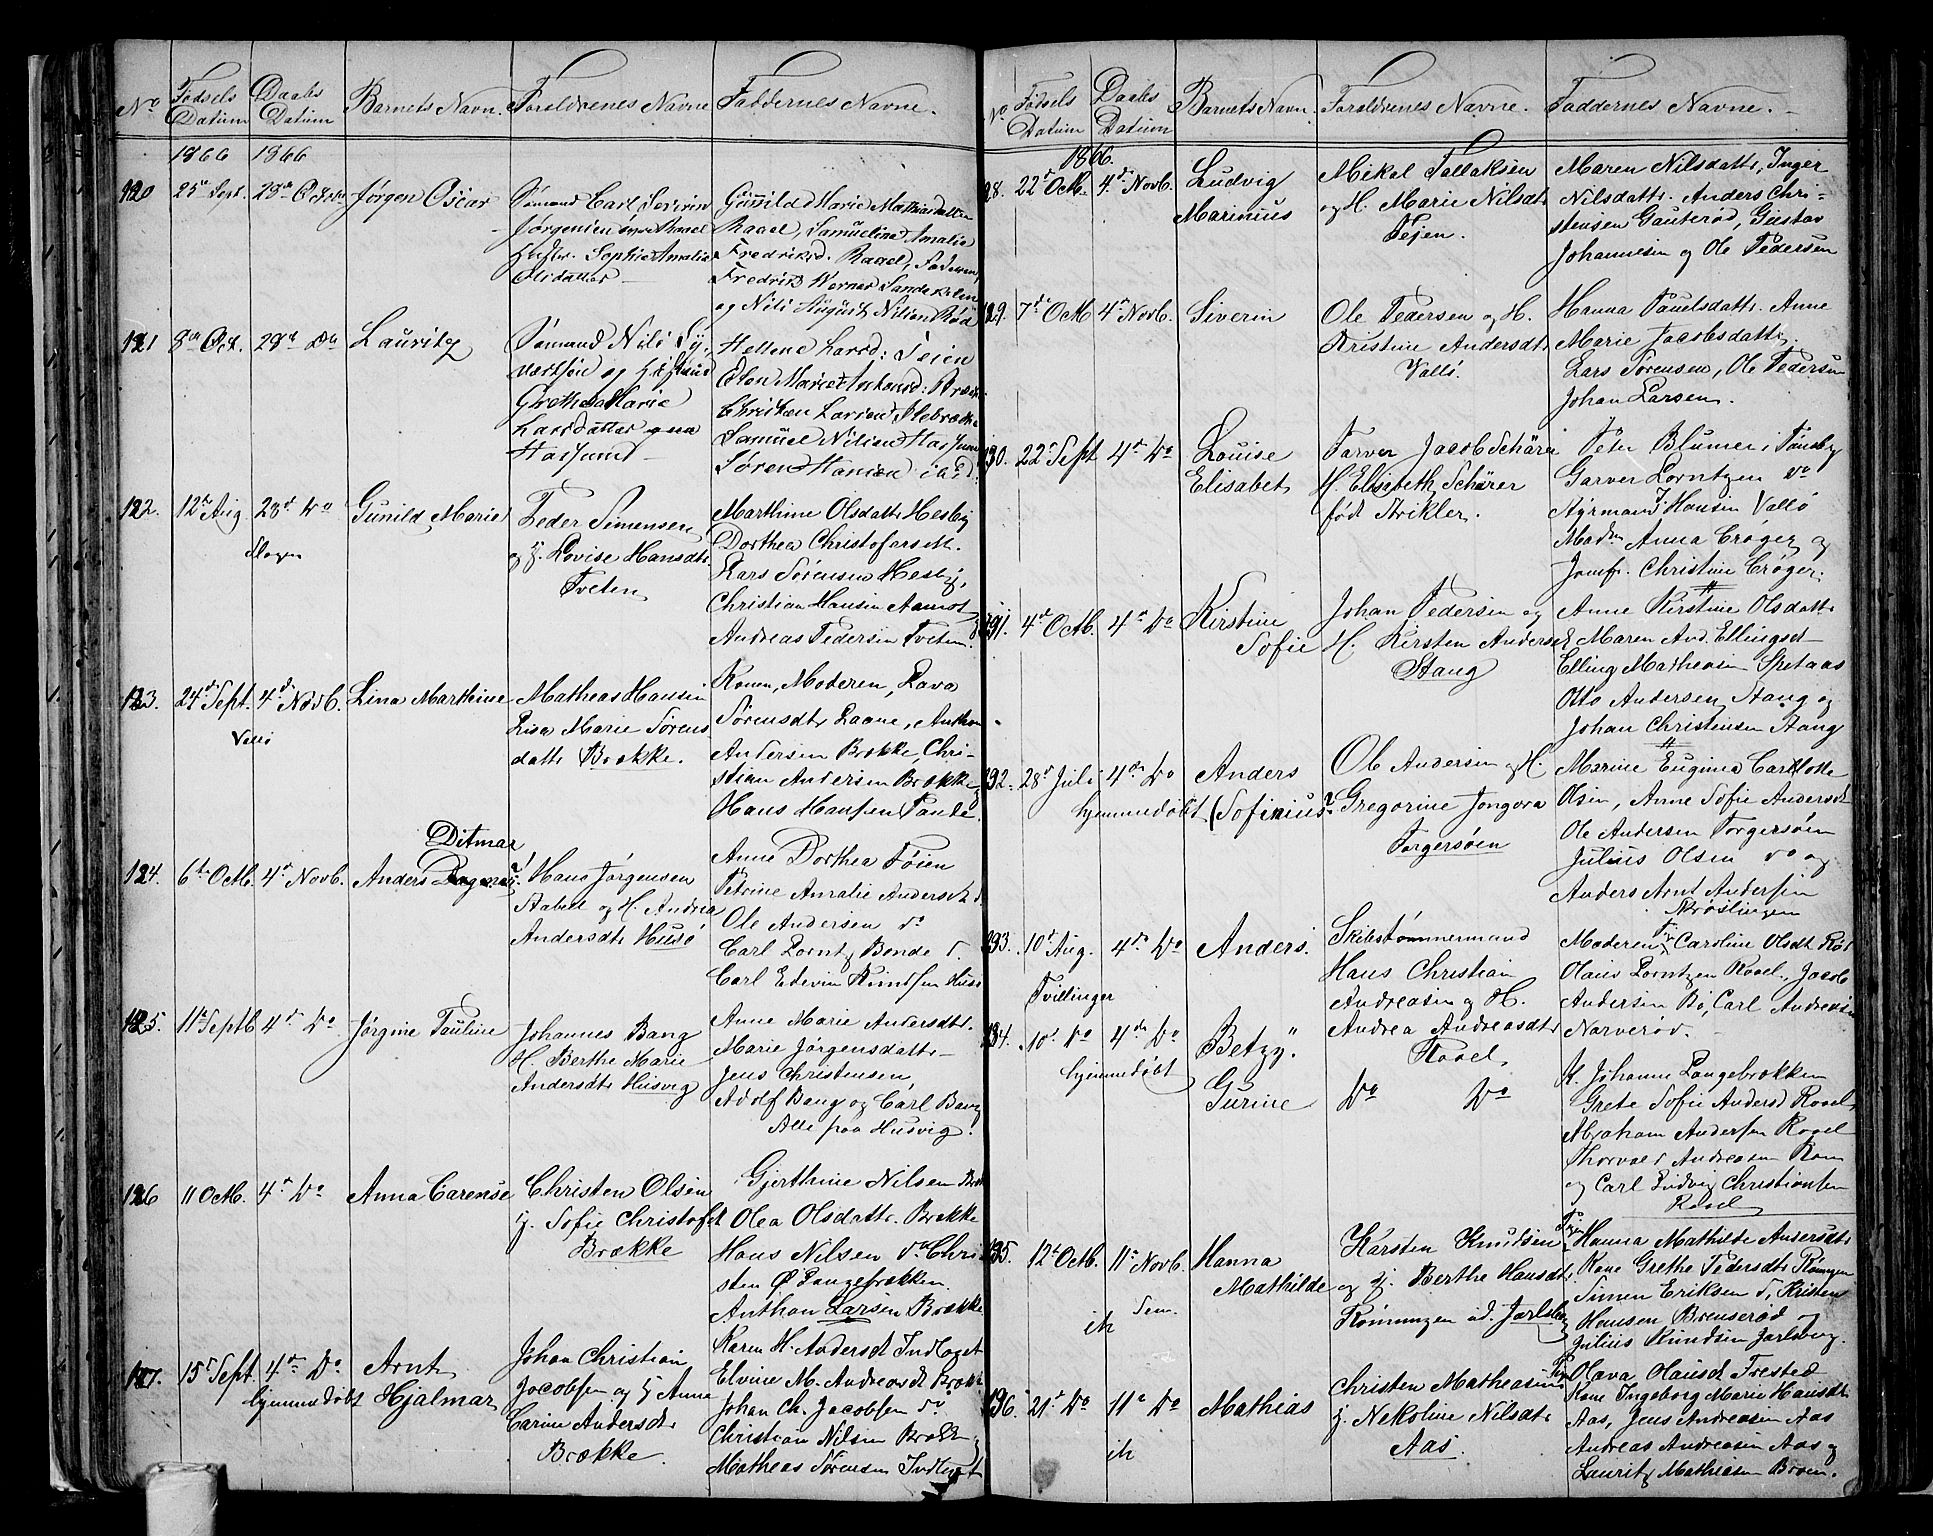 No Fødsels Datum Daabs Datum Barnets Navn. Forældrenes Navne Faddernes Navne.
1866 1866
120 25de Sept. 28de Octobr Jørgen Oscar
Sømand Carl Severin
Jørgensen
Hustr. Sophie Amalie
Olsdatter
Gunild Marie Mathiasdatter
Raael, Samueline Amalie
Fredriksd. Raael, Faderen,
Fredrik Werner Sandekilen
og Nils August Nilsen Rød
121 8de Oct. 28de Do Lauritz
Sømand Nils Sy-
vertsøn og Hustrue
Grethe Marie
Larsdatter
Hassum
Hellene Larsd: Feien
Christen Larsen
Samuel Nilsen Hassum
Søren Hansen ibid.
122. 12te Aug 28de Do Gunild Marie
Slagen
Peder Simensen
og H. Lovise Hansdtr
Tveten
Marthine Olsdattr Hesby
Dorthea Christofersd.
Lars Sørensen Hesby,
Christian Hansen Aamot
Andreas Pedersen Tveten.
123. 24de Sept. 4de Novb. Lina Marthine
Vallø
Mathias Hansen
Lisa Marie Sørens
dattr Brække.
Konen, Moderen, Lava
Sørensdtr Laane, Anthon
Andersen Brække, Chri-
stian Andersen Brække
Hans Hansen Tande.
124. 6te Octb. 4de Novb. Anders
Ditmar
Hans Jørgensen
Stabell og H. Andrea
Andersdtr Husø
Anne Dorthea Føien
Petrine Amalie Andersdt
Ole Andersen do
Carl Lorntz Bende d.
Carl Edevin Knudsen Husø
125. 11te Septb 4de Do Jørgine Pauline
Johannes Bang
H. Berthe Marie
Andersdtr Husvig
Anne Marie Andersdtr.
Marie Jørgensdattr
Jens Christensen,
Adolf Bang og Carl Bang
Alle fra Husvig.
126 11 Octb. 4de Do Anna Carense
Christen Olsen
H. Sofie Christofsdt
Brække
Gjerthine Nilsen
Olea Olsdattr. Brække
Hans Nilsen do Chri
sten Ø. Langebrækken
Anthon Larsen Brække
127. 15de Sept. 4de Do. Arnt
hjemmedøbt Hjalmar
Johan Christian
Jacobsen og H Anne
Carine Andersdtr
Brække.
Karen H. Andersdt Indlaget
Elvine M. Andreasdt Brække
Johan Ch. Jacobsen do
Christian Nilsen Brække
Mathias Sørensen Indlaget
No Fødsels Datum Daabs Datum Barnets Navn. Forældrenes Navne. Faddernes Navne.
1866.
128. 22de Octb. 4de Novb. Ludvig
Marinius
Mikal Tollaksen
og H. Marie Nilsdt
Feien.
Maren Nilsdattr, Inger
Nilsdattr. Anders Chri-
stensen Gauterød, Gustav
Johannesen og Ole Pedersen
129. 7de Octb 4de Novb. Siverin
Ole Pedersen og H.
Kristine Andersdtr
Vallø.
Hanna Paulsdattr. Anne
Marie Jacobsdattr.
Lars Sørensen, Ole Pedersen
Johan Larsen.
130. 22de Sept 4de Do Louise
Elisabet
Farver Jacob Schärer
H. Elisabeth Schärer
født Strikler.
Peter Blumer i Tønsbg
Garver Lorntzen do
Styrmand J. Hansen Vallø
Madm Anna Crøger og
Jomf. Christine Crøger.
131. 4de Octb. 4de Do Kirstine
Sofie
Johan Pedersen og
H. Kirsten Andersdt
Stang
Anne Kirstine Olsdattr
Maren And. Ellingsdt
Elling Matheasen Spetaas
Otto Andersen Stang og
Johan Christensen Stang
132. 28de Juli 4de Do Anders
hjemmedøbt (Sofinius?
Ole Andersen og H.
Gregorine Jongora
Torgersøen
Marine Euginea Carlotte
Olsen, Anne Sofie Andersdt
Ole Andersen Torgersøen
Julius Olsen do og
Anders Arnt Andersen
Nrøslingen
133. 10de Aug. 4de Do Anders.
Tvillinger
Skibstømmermand
Hans Christian
Andreasen og H.
Andrea Andreasdtr
Roael
Moderen, Caroline Olsdt Rød
Olaus Lorntzen Roael, Jacob
Andersen Bø, Carl Andreasen
Narverød.
134. 10de Do 4de Do Betzy.
hjemmedøbt
Gurine Do Do
K. Johanne Langebrækken
Grete Sofie Andersd Roael,
Abraham Andersen Roael
Thorvald Andreasen Rom
og Carl Ludvig Christiansen
Roael
135. 12te Octb. 11te Novb. Hanna
Mathilde
Sem.
Karsten Knudsen
og H. Berthe Hansdtr
Rømmingen ud. Jarlsberg
Pige Hanna Mathilde Andersdtr
Kone Grethe Pedersdtr Rømmgen
Simen Eriksen d, Kristen
Hansen Brenserød og
Julius Knudsen Jarlsberg.
136. 21de Do 11te Do Mathias
Christen Matheasen
H. Nekoline Nilsdtr
Aas.
Pige Olava Olausdt Trested
Kone Ingeborg Marie Hansdtr
Aas, Jens Andreasen Aas
Andreas Andreasen Aas og
Lauritz Mathiasen Broen.